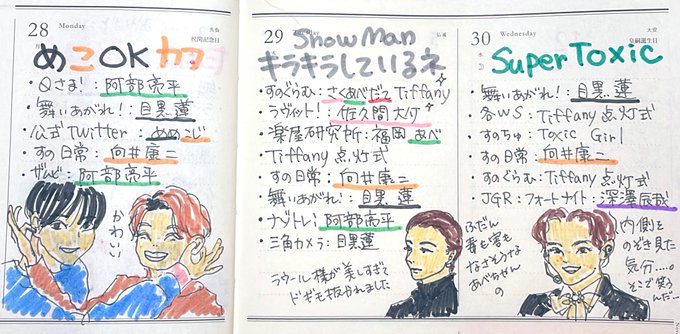 28 Monday 先負
月 税関記念日
めこOKカフ
・Qさま!:阿部亮平
・舞いあがれ!:目黒蓮
・公式Twitter:めめこじ
・すの日常:向井康二
・ザムビ:阿部亮平
かわいい
29 仏滅
Snow Man
ギラギラしているネ
・すのぐらむ:さくあべだてTiffany
・ラヴィット!:佐久間大介
・楽屋研究所:福岡 あべ
・Tiffany 点灯式
・すの日常:向井康二
・舞いあがれ!:目黒 蓮
・ナゾトレ:阿部亮平
・三角カメラ:目黒蓮
ラウール様が美しすぎて
ドギモ抜かれました
30 Wednesday 大安
水 皇嗣誕生日
Super Toxic
・舞いあがれ!:目黒蓮
・各WS:Tiffany 点灯式
・すのちゅ:Toxic Girl
・すの日常:向井康二
・すのぐらむ:Tiffany 点灯式
・JGR:フォートナイト:深澤辰哉
ふだん
毒も害も
なさそうな
あべちゃん
の
内側を
のぞき見た
気分……。
そこで笑う
んだ…